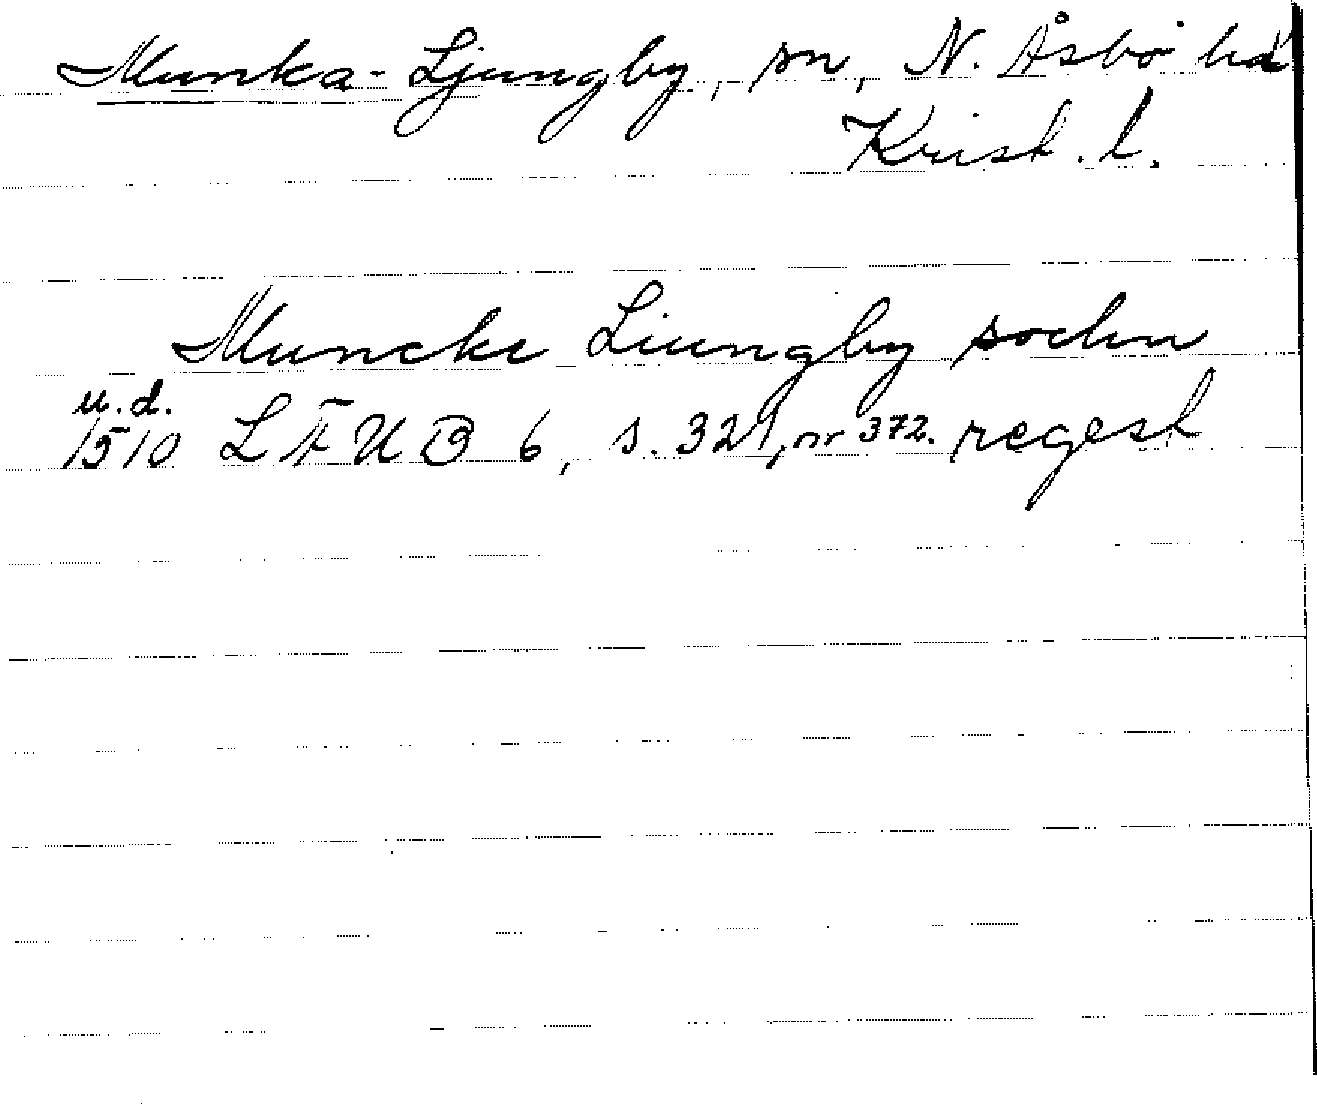 Munka-Ljungby, sn, N. Åsbo hd
Krist. l.
Muncke Liungby sochn
u.d.
1510 LÄUB 6, s. 321, nr 372. regest